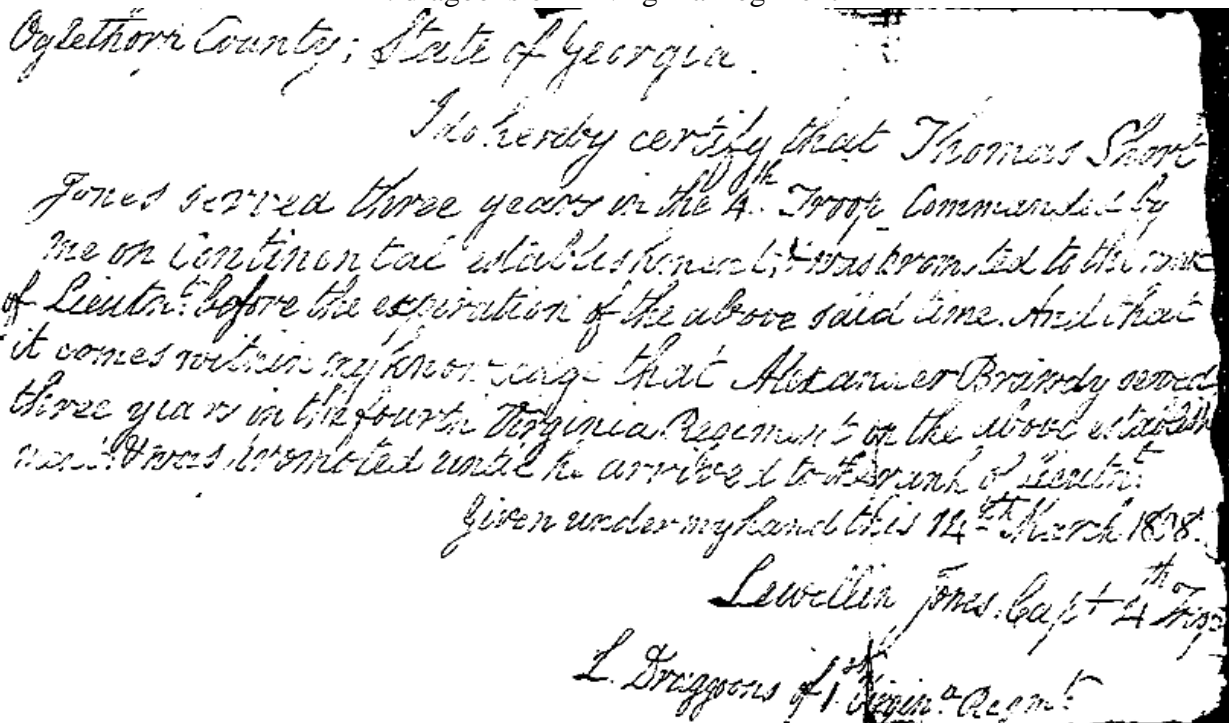 Oglethorp County; State of Georgia.
I do hereby certify that Thomas Short
Jones served three years in the 4th Troop Commanded by
me on Continental establishment, & was promoted to the rank
of Lieutnt. before the expiration of the above said time. And that
it comes within my knowledge that Alexander Brandy served
three years in the fourth Virginia Regiment on the above establish
ment & was promoted until he arrived to the rank of Lieutnt.
Given under my hand this 14th March 1808.
Lewellin Jones. Capt 4th Troop
L. Draggoons of 1st Virgina. Regmt.